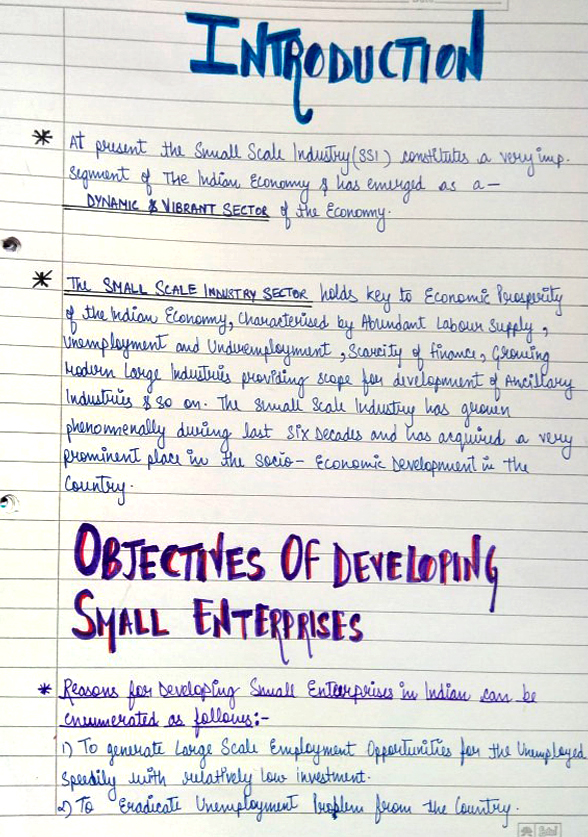 INTRODUCTION
* At present the Small Scale Industry(SSI) constitutes a very imp.
segment of The Indian Economy & has emerged as a–
DYNAMIC & VIBRANT SECTOR of the Economy.
* The SMALL SCALE INDUSTRY SECTOR holds key to Economic Prosperity
of the Indian Economy, Characterised by Abundant Labour Supply,
Unemployment and Underemployment, Scarcity of finance, Growing
Modern Large Industries providing scope for development of Ancillary
Industries & so on. The small Scale Industry has grown
phenomenally during last Six Decades and has acquired a very
prominent place in the Socio-Economic Development in the
Country.
OBJECTIVES OF DEVELOPING
SMALL ENTERPRISES
* Reasons for Developing Small Enterprises in Indian can be
enumerated as follows:-
1) To generate Large Scale Employment Opportunities for the Unemployed
speedily with relatively low investment.
2) To Eradicate Unemployment Problem from the Country.